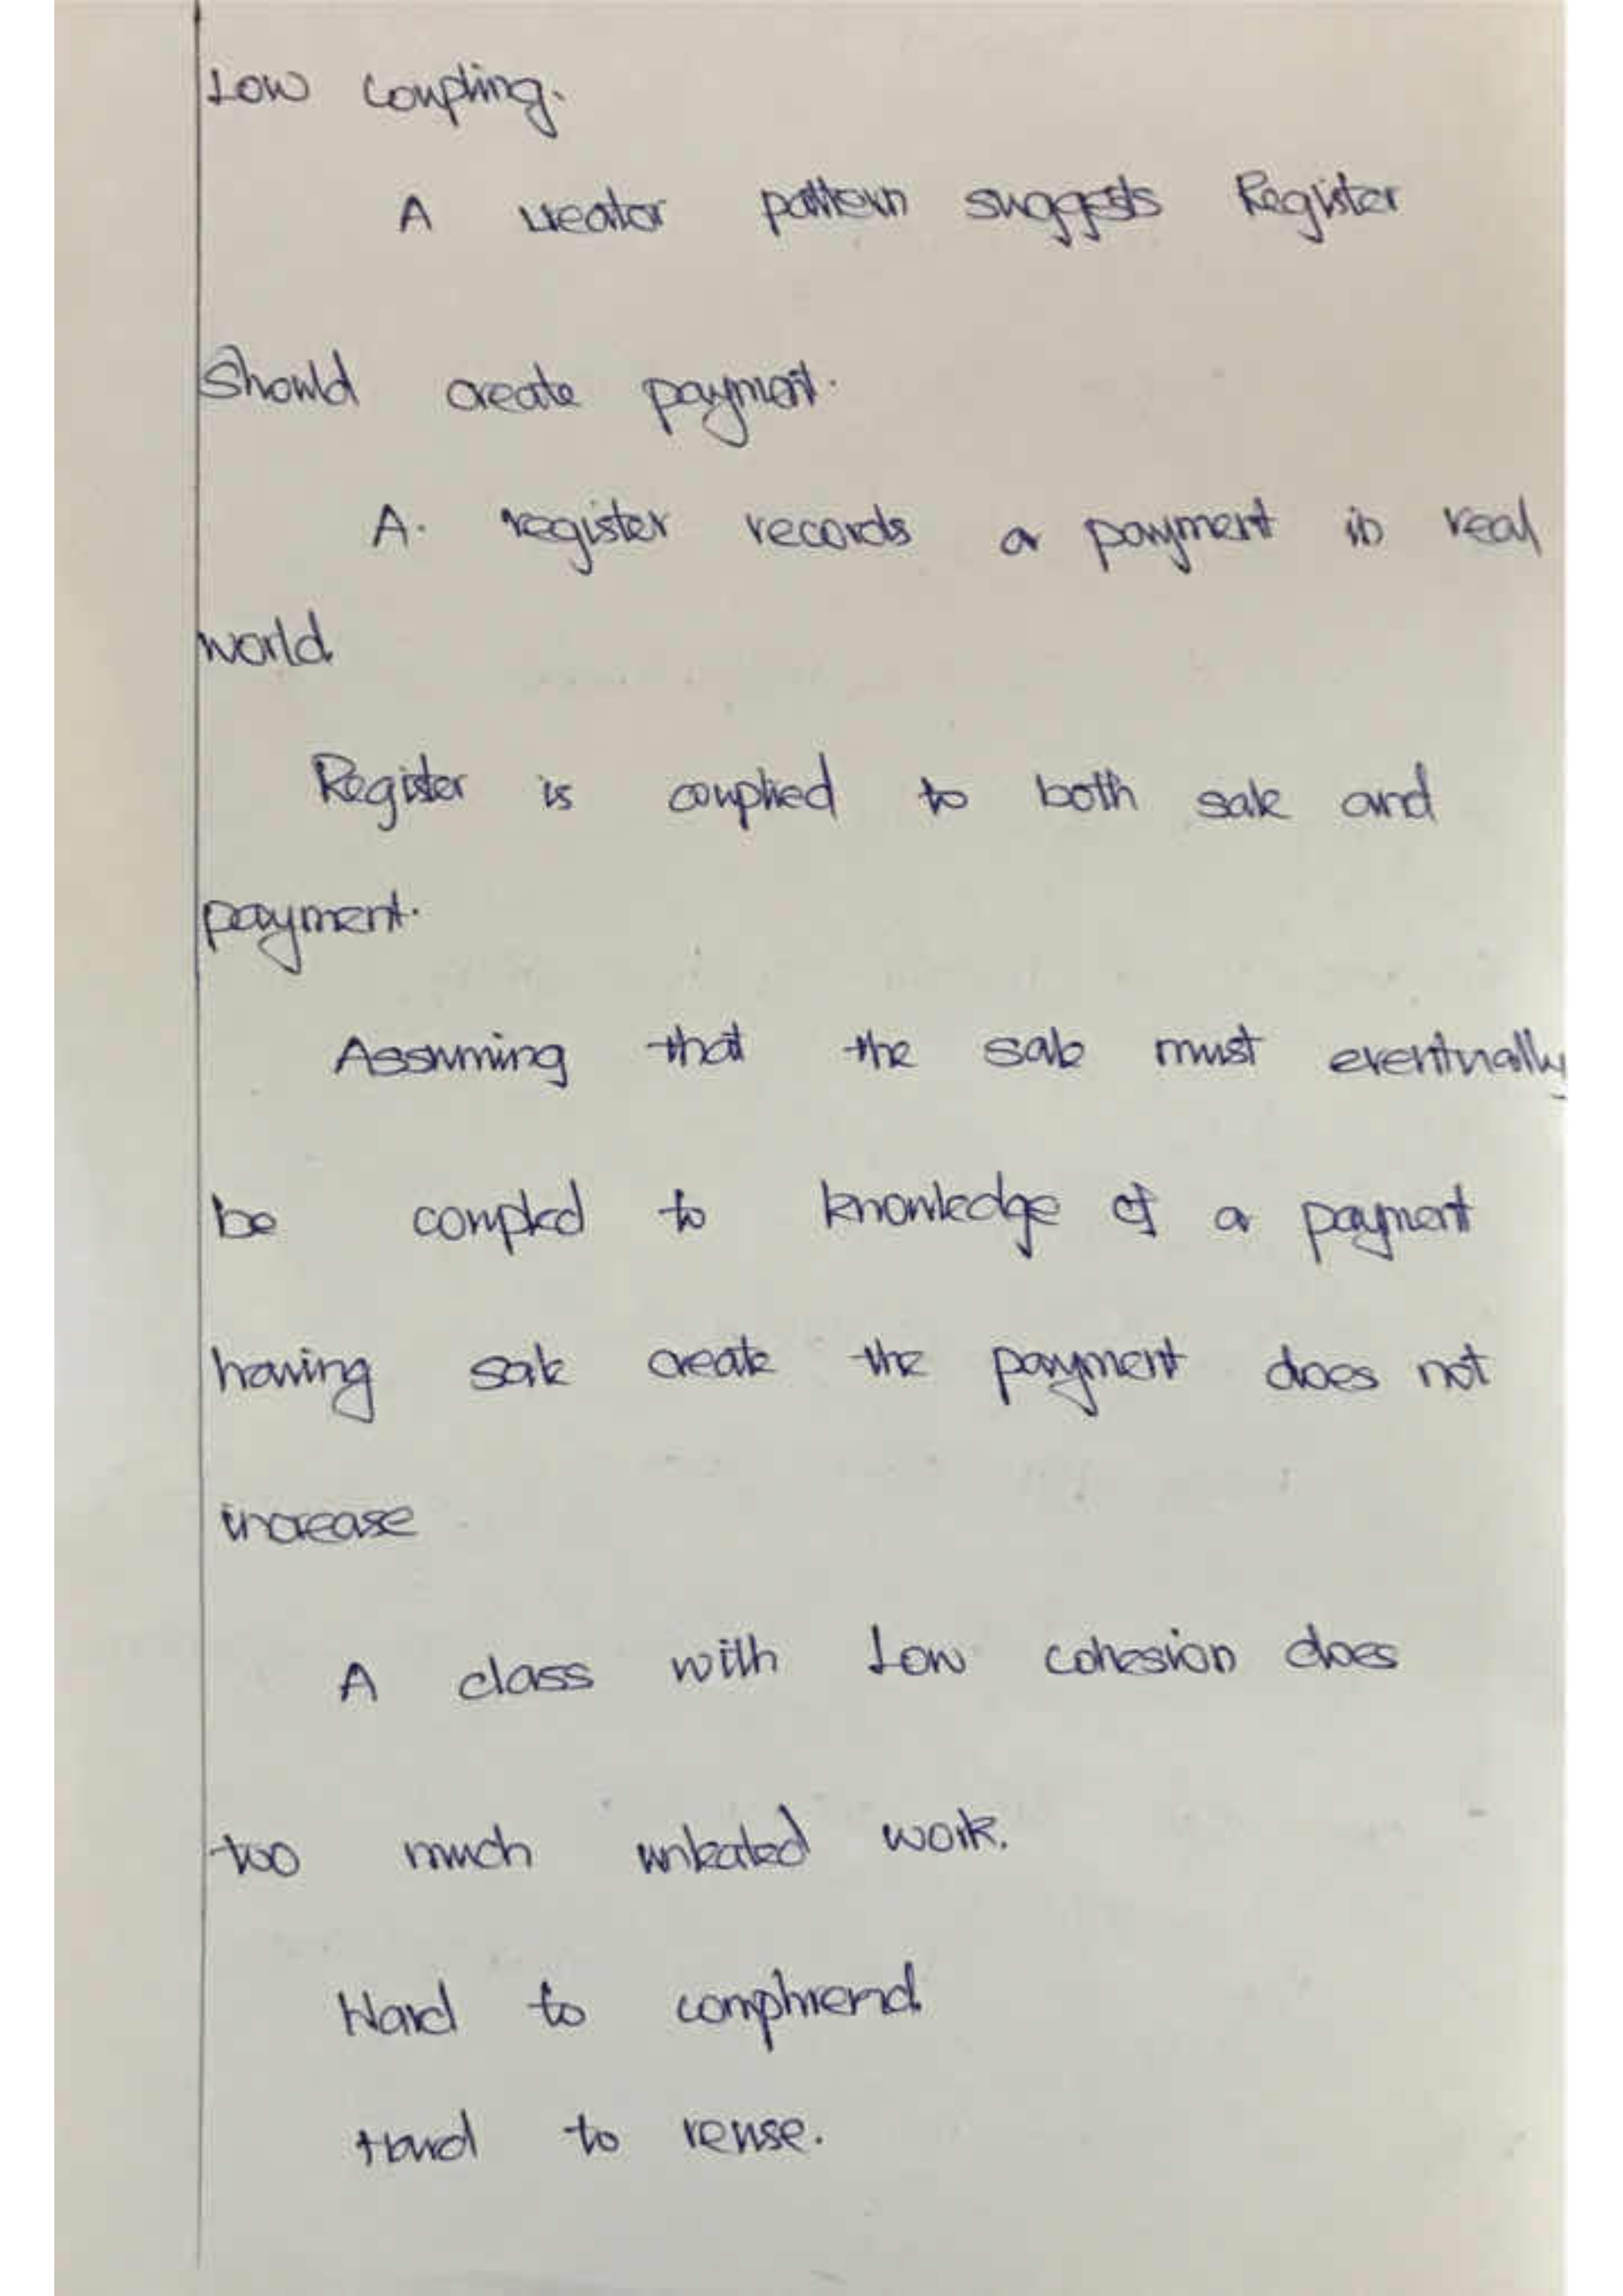 Low Coupling.
A creator pattern suggests Register
Should create payment.
A. register records a payment in real
world.
Register is couplied to both sale and
payment.
Assuming that the sale must eventually
be coupled to knowledge of a payment
having sale create the payment does not
increase
A class with Low cohesion does
too much unleated work.
Hard to comphrend.
Hard to reuse.